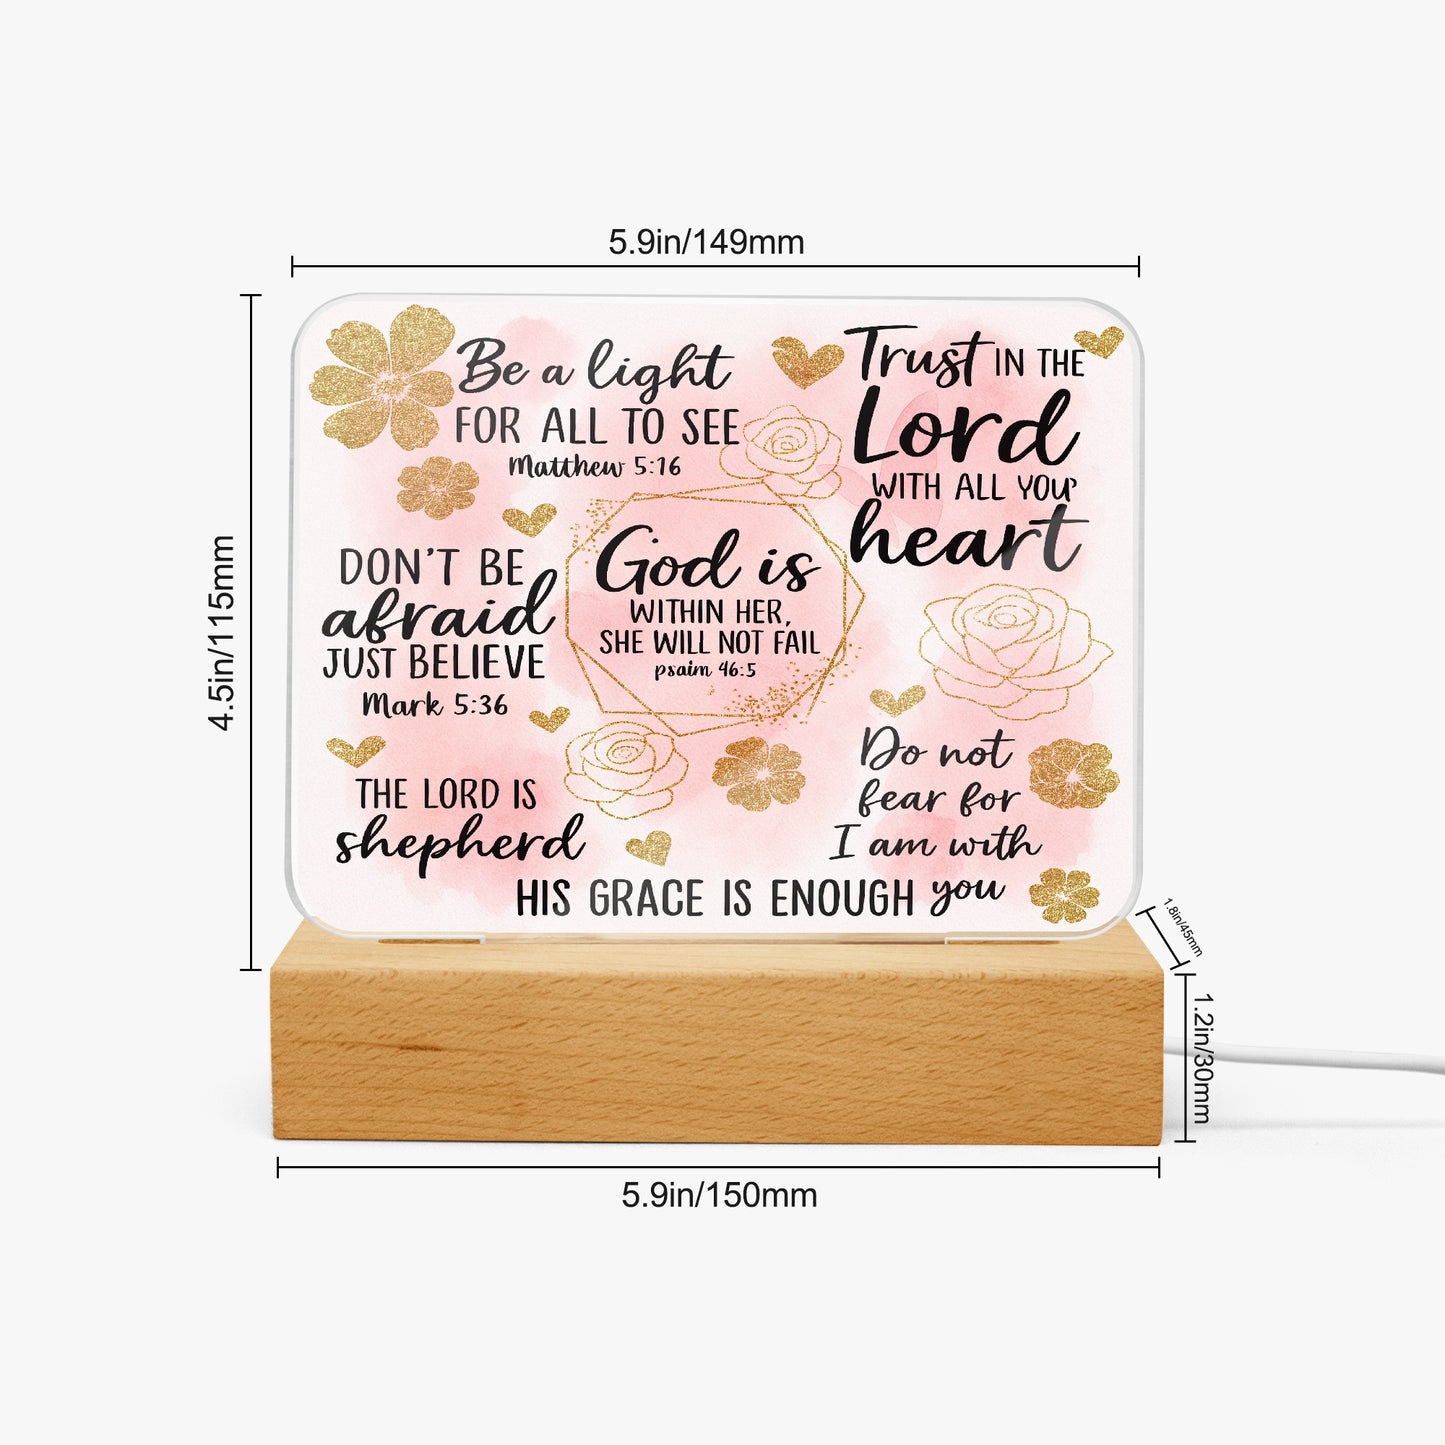 5.9in/149mm
4.5in/115mm
Be a light
FOR ALL TO SEE
Matthew 5:16
Trust IN THE
Lord
WITH ALL YOU
heart
DON'T BE
afraid
JUST BELIEVE
Mark 5:36
God is
WITHIN HER,
SHE WILL NOT FAIL
psaim 46:5
THE LORD IS
shepherd
Do not
fear for
I am with
you
HIS GRACE IS ENOUGH
1.8in/45mm
1.2in/30mm
5.9in/150mm